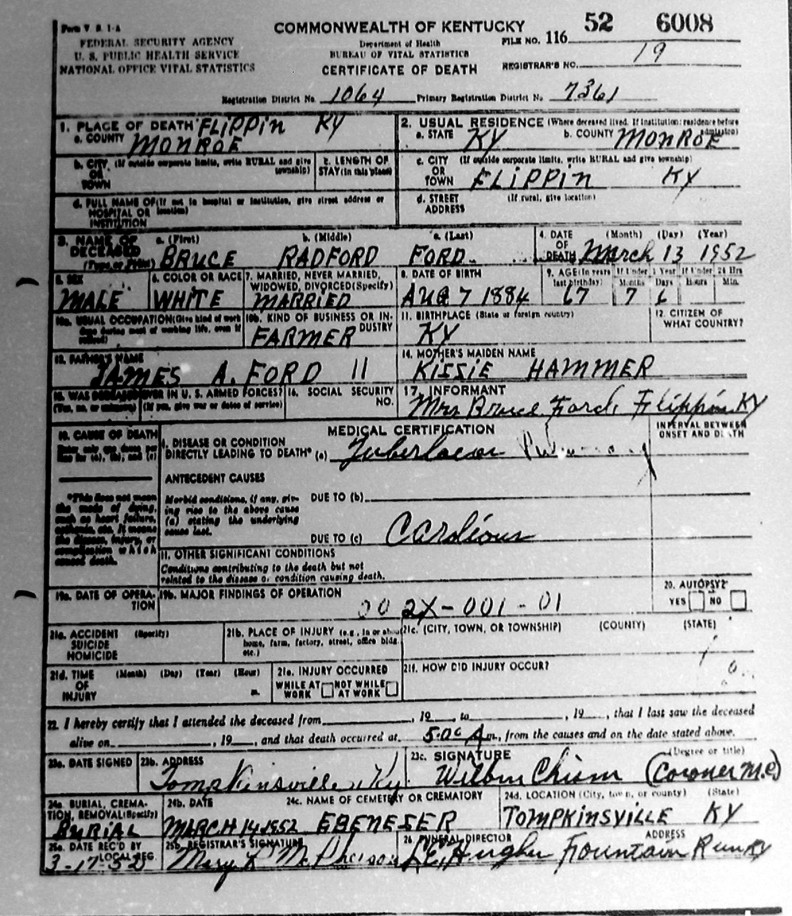 Form V. S. 1-A
FEDERAL SECURITY AGENCY
U. S. PUBLIC HEALTH SERVICE
NATIONAL OFFICE VITAL STATISTICS
COMMONWEALTH OF KENTUCKY
Department of Health
BUREAU OF VITAL STATISTICS
CERTIFICATE OF DEATH
FILE NO. 116 52 6008
REGISTRAR'S NO. 19
Registration District No. 1064 Primary Registration District No. 7361
1. PLACE OF DEATH FLIPPIN KY
a. COUNTY MONROE
2. USUAL RESIDENCE (Where deceased lived. If institution: residence before admission)
a. STATE KY b. COUNTY MONROE
b. CITY (If outside corporate limits, write RURAL and give township)
OR
TOWN
c. LENGTH OF STAY (in this place)
c. CITY (If outside corporate limits, write RURAL and give township)
OR
TOWN FLIPPIN KY
d. FULL NAME OF (If not in hospital or institution, give street address or location)
HOSPITAL OR
INSTITUTION
d. STREET ADDRESS (If rural, give location)
3. NAME OF DECEASED (Type or Print)
a. (First) b. (Middle) c. (Last)
BRUCE RADFORD FORD
4. DATE OF DEATH (Month) (Day) (Year)
March 13 1952
5. SEX
MALE
6. COLOR OR RACE
WHITE
7. MARRIED, NEVER MARRIED, WIDOWED, DIVORCED (Specify)
MARRIED
8. DATE OF BIRTH
AUG 7 1884
9. AGE (In years last birthday) If Under 1 Year Months Days If Under 24 Hrs Hours Min.
67 7 6
10a. USUAL OCCUPATION (Give kind of work done during most of working life, even if retired)
10b. KIND OF BUSINESS OR INDUSTRY
FARMER
11. BIRTHPLACE (State or foreign country)
KY
12. CITIZEN OF WHAT COUNTRY?
13. FATHER'S NAME
JAMES A. FORD 11
14. MOTHER'S MAIDEN NAME
KISSIE HAMMER
15. WAS DECEASED EVER IN U. S. ARMED FORCES?
(Yes, no, or unknown) (If yes, give war or dates of service)
16. SOCIAL SECURITY NO.
17. INFORMANT
Mrs Bruce Ford, Flippin, KY
18. CAUSE OF DEATH
Enter only one cause per line for (a), (b), and (c)
MEDICAL CERTIFICATION
INTERVAL BETWEEN ONSET AND DEATH
I. DISEASE OR CONDITION
DIRECTLY LEADING TO DEATH* (a)
ANTECEDENT CAUSES
*This does not mean the mode of dying, such as heart failure, asthenia, etc. It means the disease, injury, or complication which caused death.
Morbid conditions, if any, giving rise to the above cause (a) stating the underlying cause last.
DUE TO (b)
DUE TO (c)
II. OTHER SIGNIFICANT CONDITIONS
Conditions contributing to the death but not related to the disease or condition causing death.
19a. DATE OF OPERATION
19b. MAJOR FINDINGS OF OPERATION
002X-001-01
20. AUTOPSY?
YES NO
21a. ACCIDENT (Specify)
SUICIDE
HOMICIDE
21b. PLACE OF INJURY (e.g., in or about home, farm, factory, street, office bldg. etc.)
21c. (CITY, TOWN, OR TOWNSHIP) (COUNTY) (STATE)
21d. TIME (Month) (Day) (Year) (Hour)
OF
INJURY m.
21e. INJURY OCCURRED
WHILE AT WORK NOT WHILE AT WORK
21f. HOW DID INJURY OCCUR?
22. I hereby certify that I attended the deceased from , 19 to , 19 , that I last saw the deceased
alive on , 19 , and that death occurred at 5:00 A m., from the causes and on the date stated above.
23a. DATE SIGNED
23b. ADDRESS
Tompkinsville, Ky.
23c. SIGNATURE (Degree or title)
Wilbur Chism (Coroner M.C)
24a. BURIAL, CREMATION, REMOVAL (Specify)
BURIAL
24b. DATE
MARCH 14 1952
24c. NAME OF CEMETERY OR CREMATORY
EBENESER
24d. LOCATION (City, town, or county) (State)
TOMPKINSVILLE KY
25a. DATE REC'D BY LOCAL REG.
3-17-52
25b. REGISTRAR'S SIGNATURE
Mary L McPherson
26. FUNERAL DIRECTOR ADDRESS
Fountain Run KY